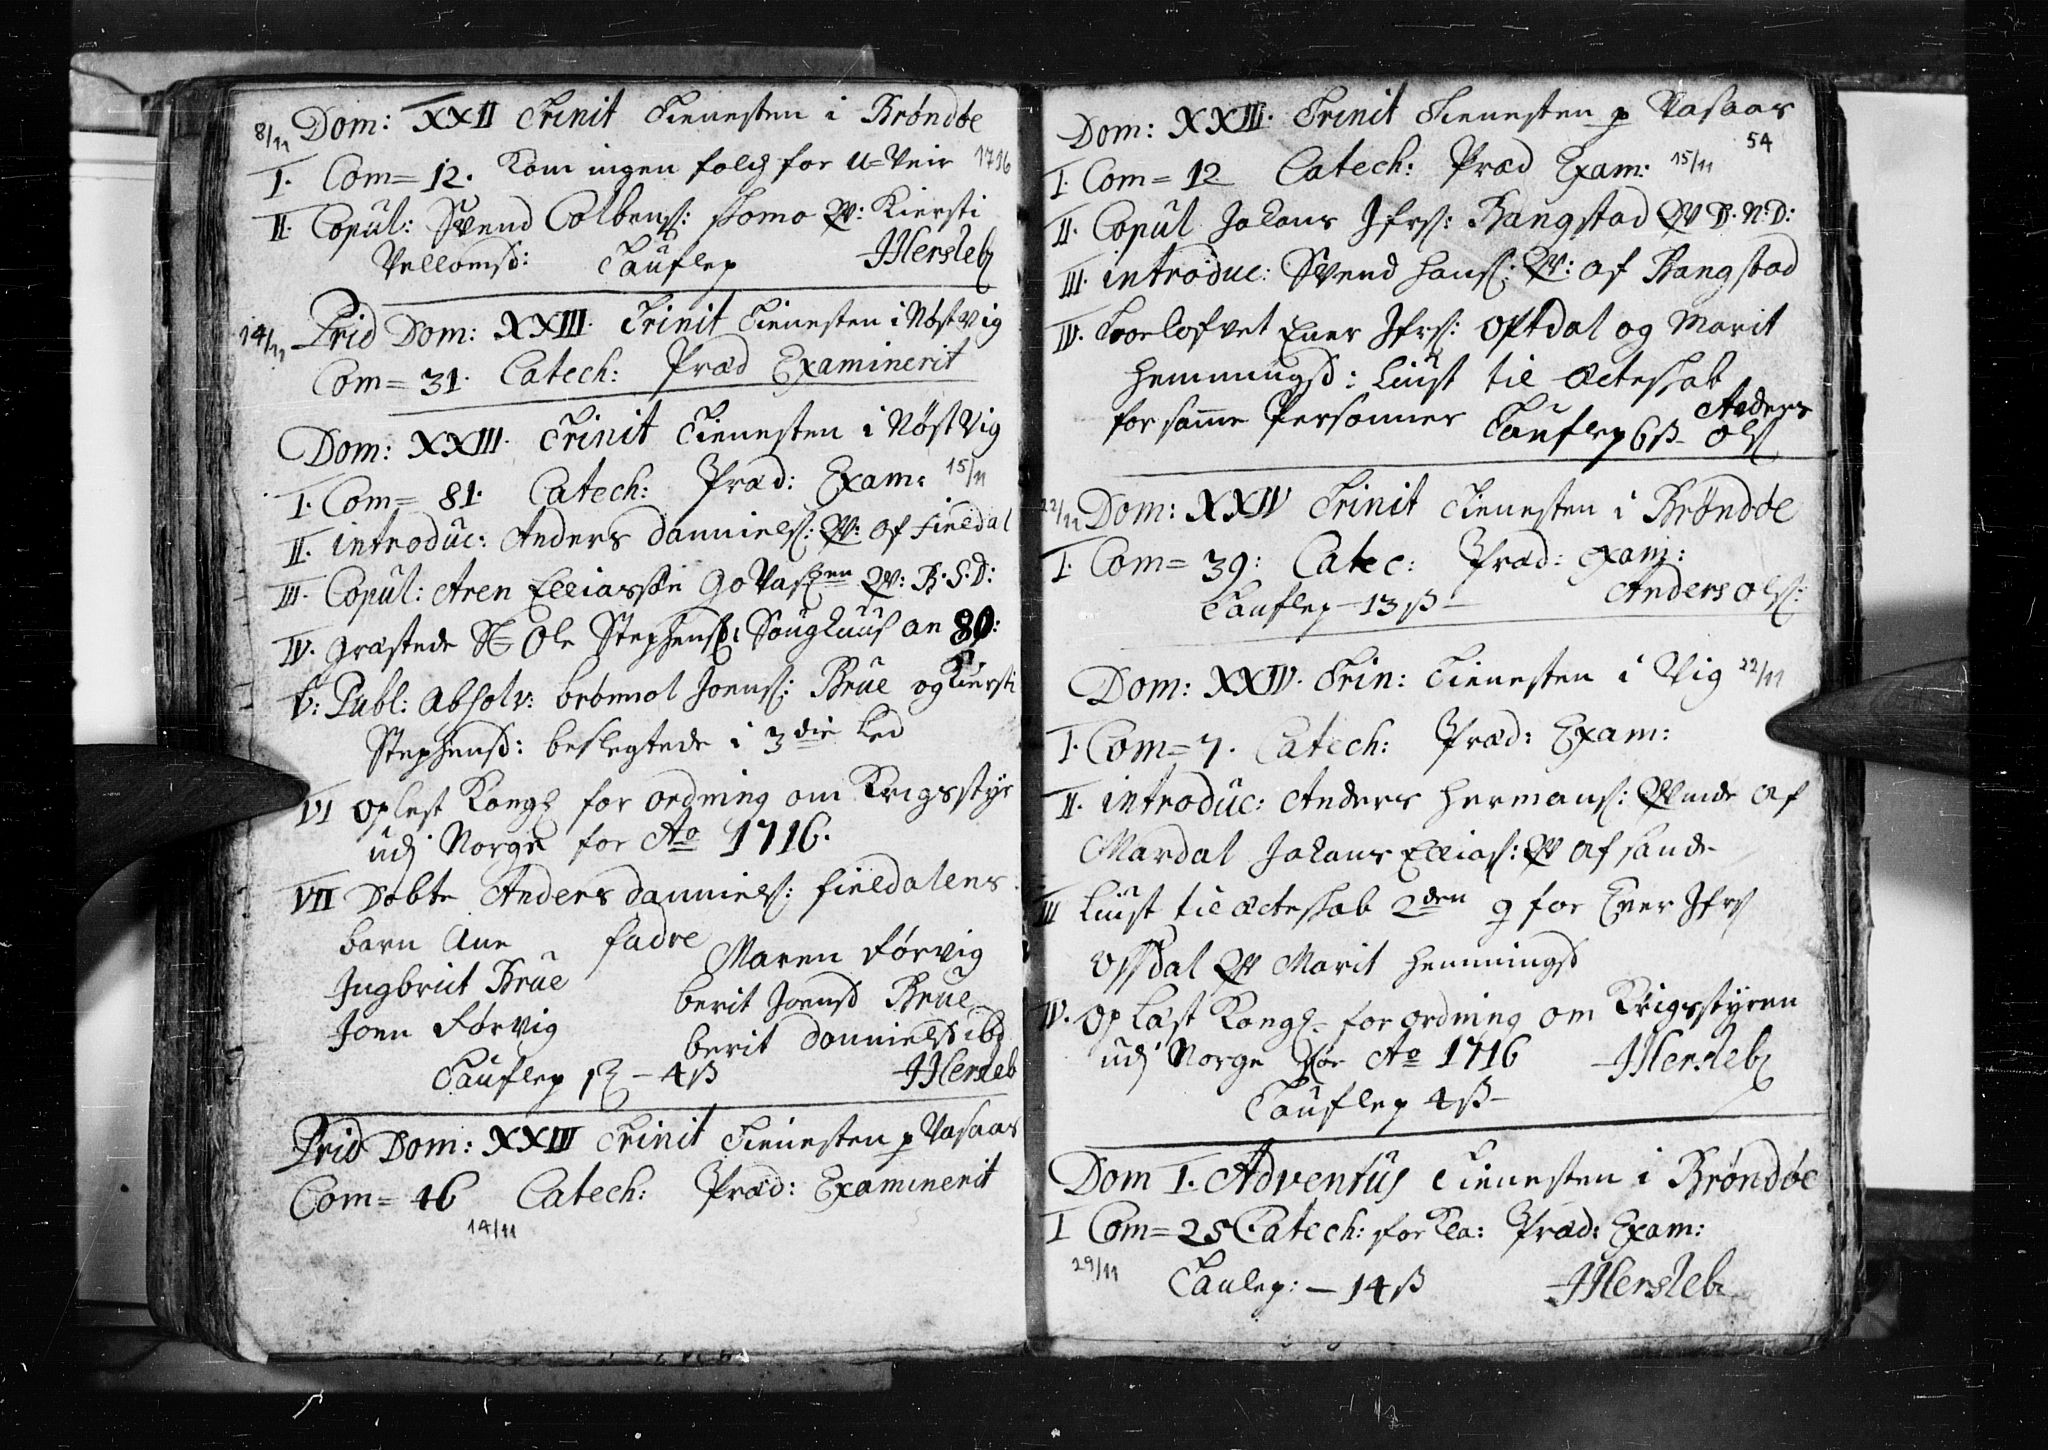 8/11 Dom: XXII Trinit Tienesten i Brøndøe
I. Com= 12. Kom ingen folch for U=Veir 1716
II. Copul: Svend Colbens: Homo Qv: Kiersti
Vellomsd: Tauflep JHersleb
14/11 Prid Dom: XXIII. Trinit Tienesten i Nøstvig
Com= 31. Catech: Præd Examinerit
Dom: XXIII. Trinit Tienesten i Nøstvig
I. Com= 81. Catech: Præd: Exam: 15/11
II. introduc: Anders Danniels: Qv: af Fieldal
III. Copul: Aren Elliassøn Qv: B.S.D:
IV. græstede S Ole Stephens: an 80:
V: Publ: Absolv: Brønnol Joens: Brue og Kiersti
Stephensd: beslegtede i 3die Led
VI Oplest Kongl for ordning om Krigsstyr
udj Norge for Ao 1716.
VII Døbte Anders Danniels: Fieldalens
barn Ane fadre Maren Førvig
Ingbrut Brue berit Joensd Brue
Joen Førvig berit Dannielsd ibd
Tauflep - 4 ß JHersleb
Prid Dom: XXIII Trinit Tienesten p Vasaas
Com= 46 Catech: Præd: Examinerit
14/11
Dom: XXIII. Trinit Tienesten p Vasaas
54
I. Com= 12 Catech: Præd Exam: 15/11
II. Copul Johans Ifrs: Bangstad Qv B.N.D:
III. introduc: Svend Hans: Qv: af Bangstad
IV. Troelofvet Ener Ifrs: Opdal og Marit
Hemmingsd: Liust til Ecteskab
for samme Personner Tauflep 6ß Anders
Ols
22/11 Dom: XXIV Trinit Tienesten i Brøndøe
I. Com= 39: Catec: Præd: Exam:
Tauflep - 13 ß - Anders Ols:
Dom: XXIV. Trin: Tienesten i Vig 22/11
I. Com= 7. Catech: Præd: Exam:
II. introduc: Anders Hermans: Qvinde af
Mardal Johans Ellias: Qv af Sande
III Liust til Ecteskab 2den g for Ener Ifrs
Opsdal Qv Marit Hemmingsd
IV. Oplæst Kongl for ordning om Krigsstyren
udj Norge for Ao 1716 JHersleb
Tauflep 4 ß -
Dom I. Adventus Tienesten i Brøndøe
I Com= 25 Catech: forkla: Præd: Exam:
29/11 Taulep: - 14 ß JHersleb